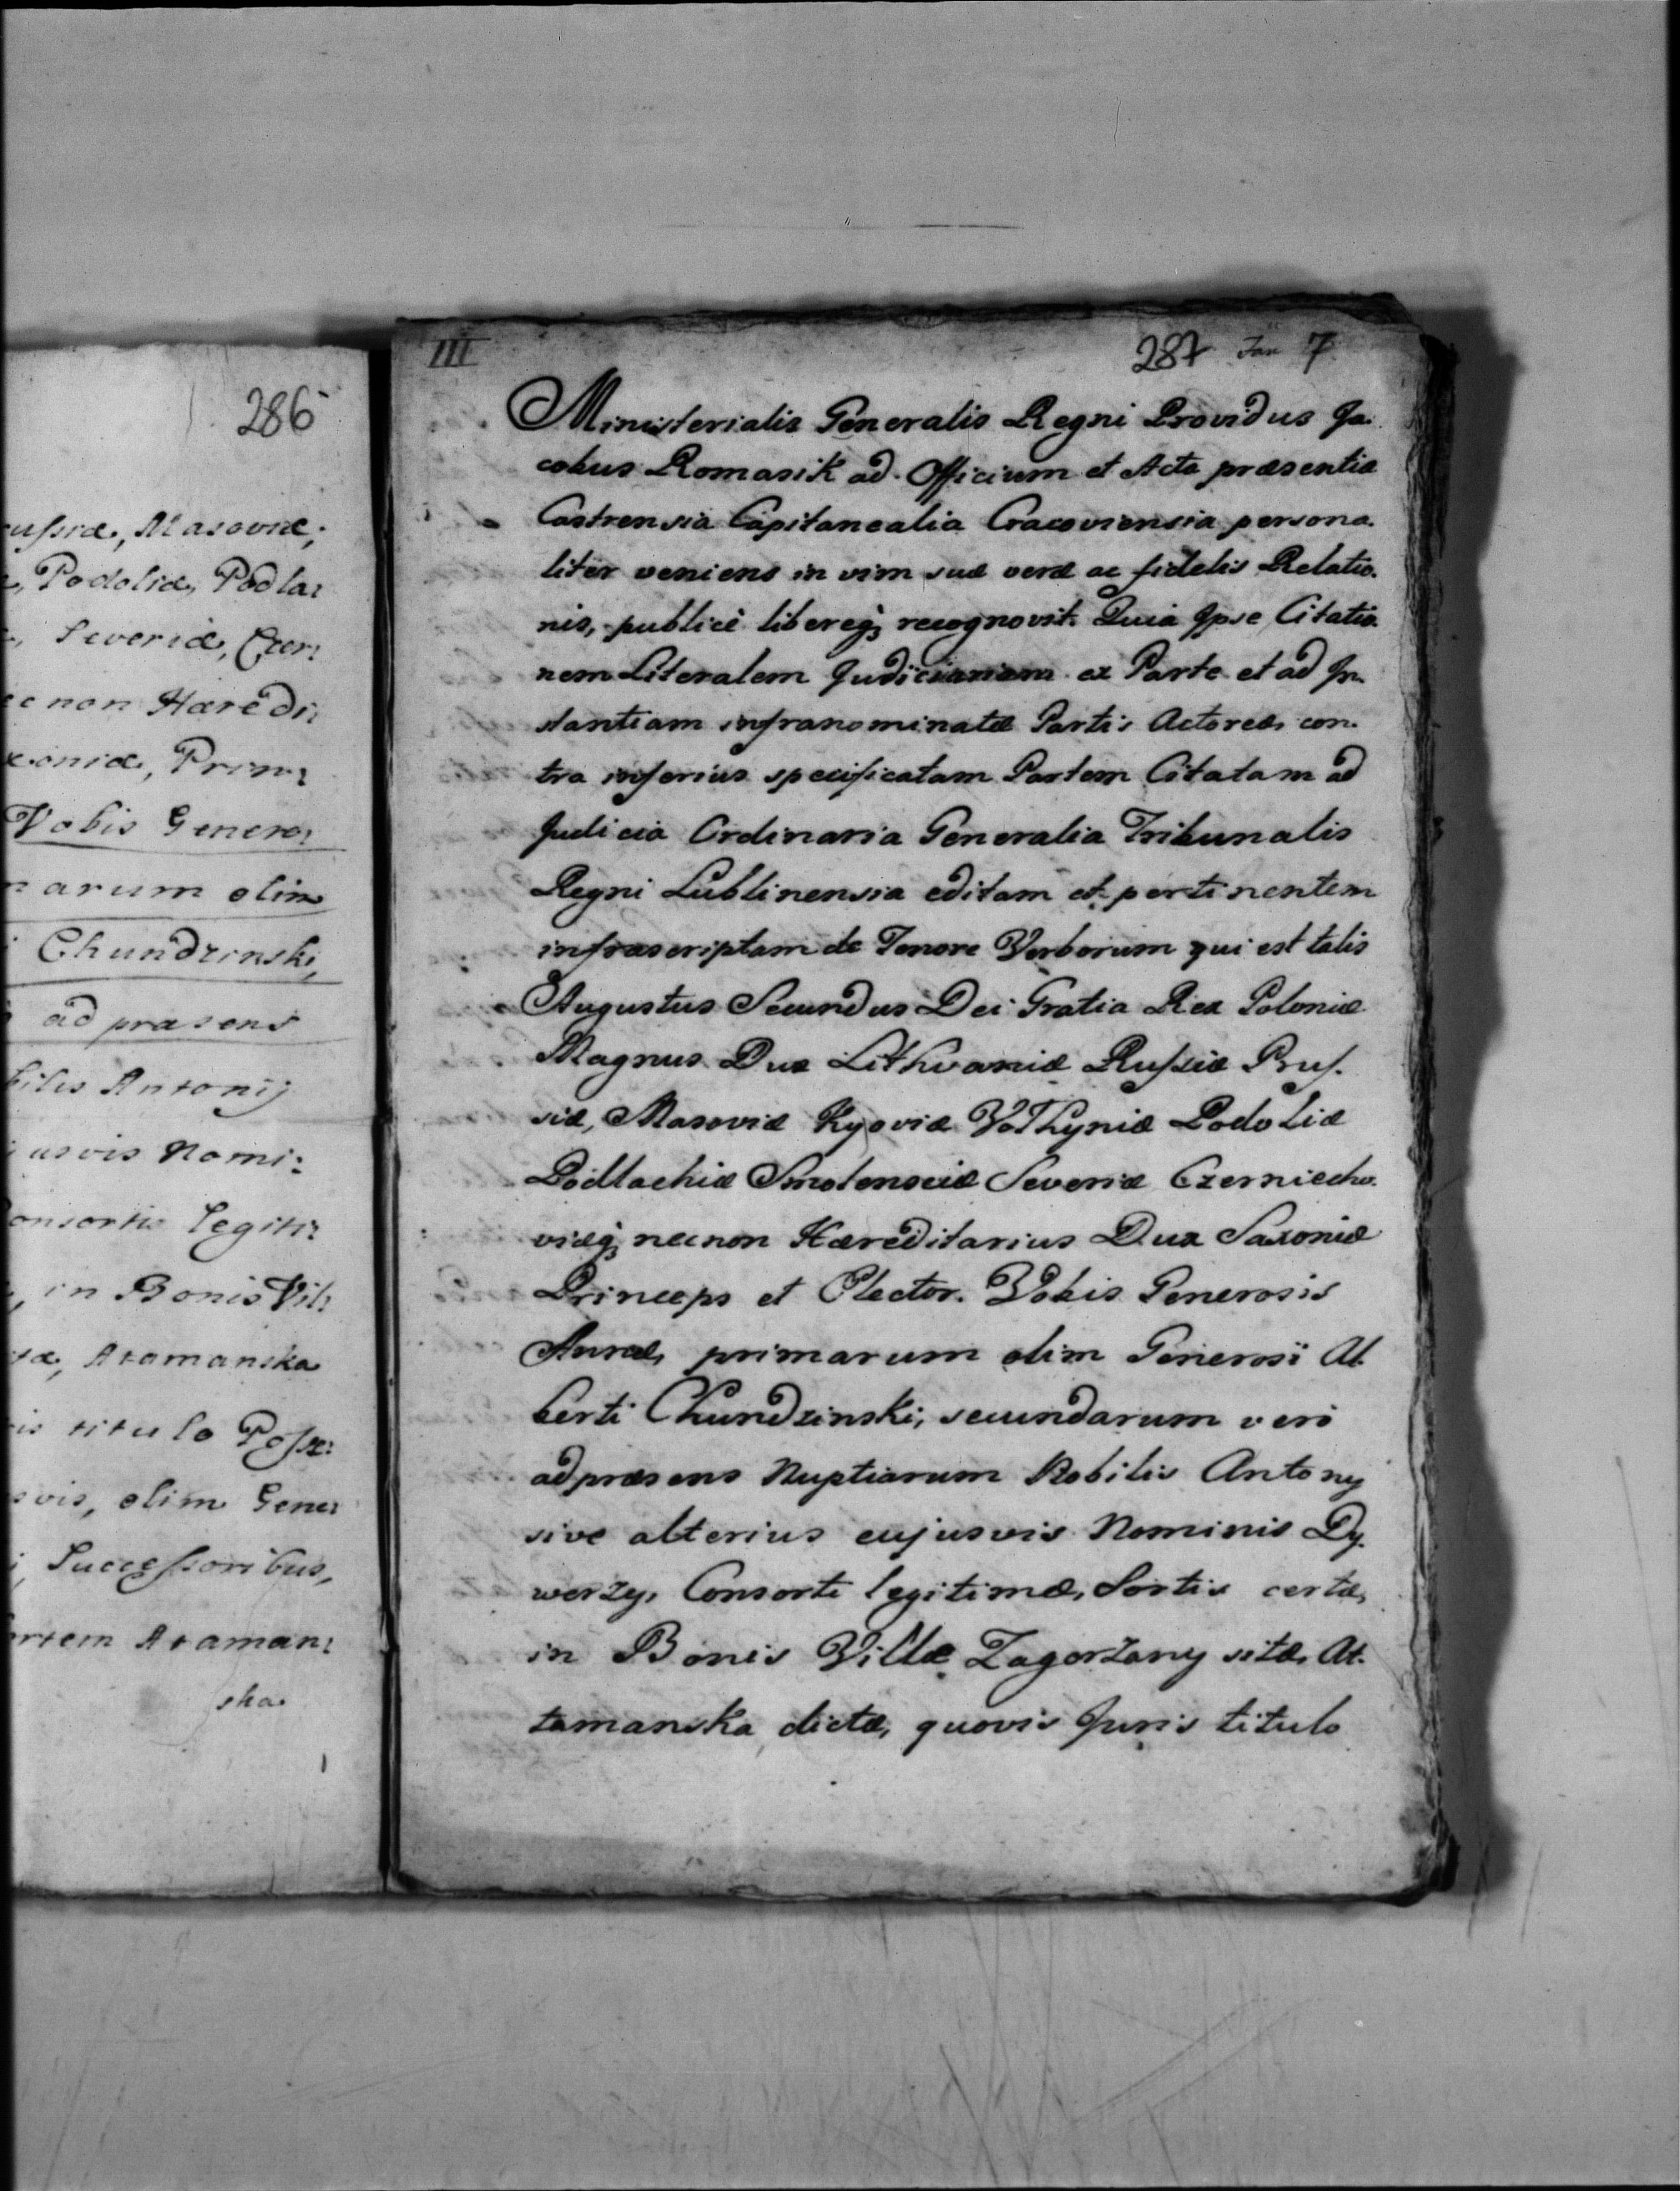 286
ussiæ, Masoviæ;
Podoliæ, Podla:
Severiæ, Czer:
ec non Hæredi:
xoniæ, Prin:
Vobis Genero:
narum olim
Chundzinski,
ad præsens
bilis Antonij
usvis Nomi:
onsortis legiti:
in Bonis Vil:
tæ, Atamanska
is titulo Posse:
svis, olim Gene:
i, Successoribus,
ortem Ataman:
ska
III
287 Jan 7
Ministerialis Generalis Regni Providus Ja.
cobus Romasik ad Officium et Acta præsentia
Castrensia Capitanealia Cracoviensia persona.
liter veniens in vim suæ veræ ac fidelis Relatio.
nis, publicè libereq; recognovit. Quia Ipse Citatio.
nem Literalem Judiciariam ex Parte et ad In.
stantiam infranominatæ Partis Actoreæ, con.
tra inferius specificatam Partem Citatam ad
Judicia Ordinaria Generalia Tribunalis
Regni Lublinensia editam et pertinentem
infrascriptam de Tenore Verborum qui est talis
Augustus Secundus Dei Gratia Rex Poloniæ
Magnus Dux Lithvaniæ Russiæ Prus.
siæ, Masoviæ Kyoviæ Volhyniæ Podoliæ
Podlachiæ Smolensciæ Severiæ Czerniecho.
viæq; necnon Hæreditarius Dux Saxoniæ
Princeps et Elector. Vobis Generosis
Annæ, primarum olim Generosi Al.
berti Chundzinski, secundarum verò
ad præsens Nuptiarum Nobilis Antony
sive alterius cujusvis Nominis Dy.
werzy, Consorti legitimæ, Sortis certæ,
in Bonis Villæ Zagorzany sitæ, At.
tamanska dictæ, quovis Juris titulo